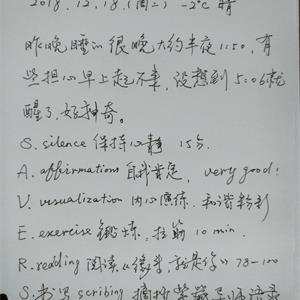 2018.12.18.(周二) -2℃ 晴
昨晚睡的很晚大约半夜1:50,有
些担心早上起不来,没想到5:06就
醒了,好神奇。
S. silence 保持心静 15分
A. affirmations 自我肯定, very good!
V. visualization 内心演练,和谐粉彩
E. exercise 锻炼,拉筋 10 min.
R. reading 阅读,《》 78-100
S. 书写 scribing 摘抄紫薇导师语录